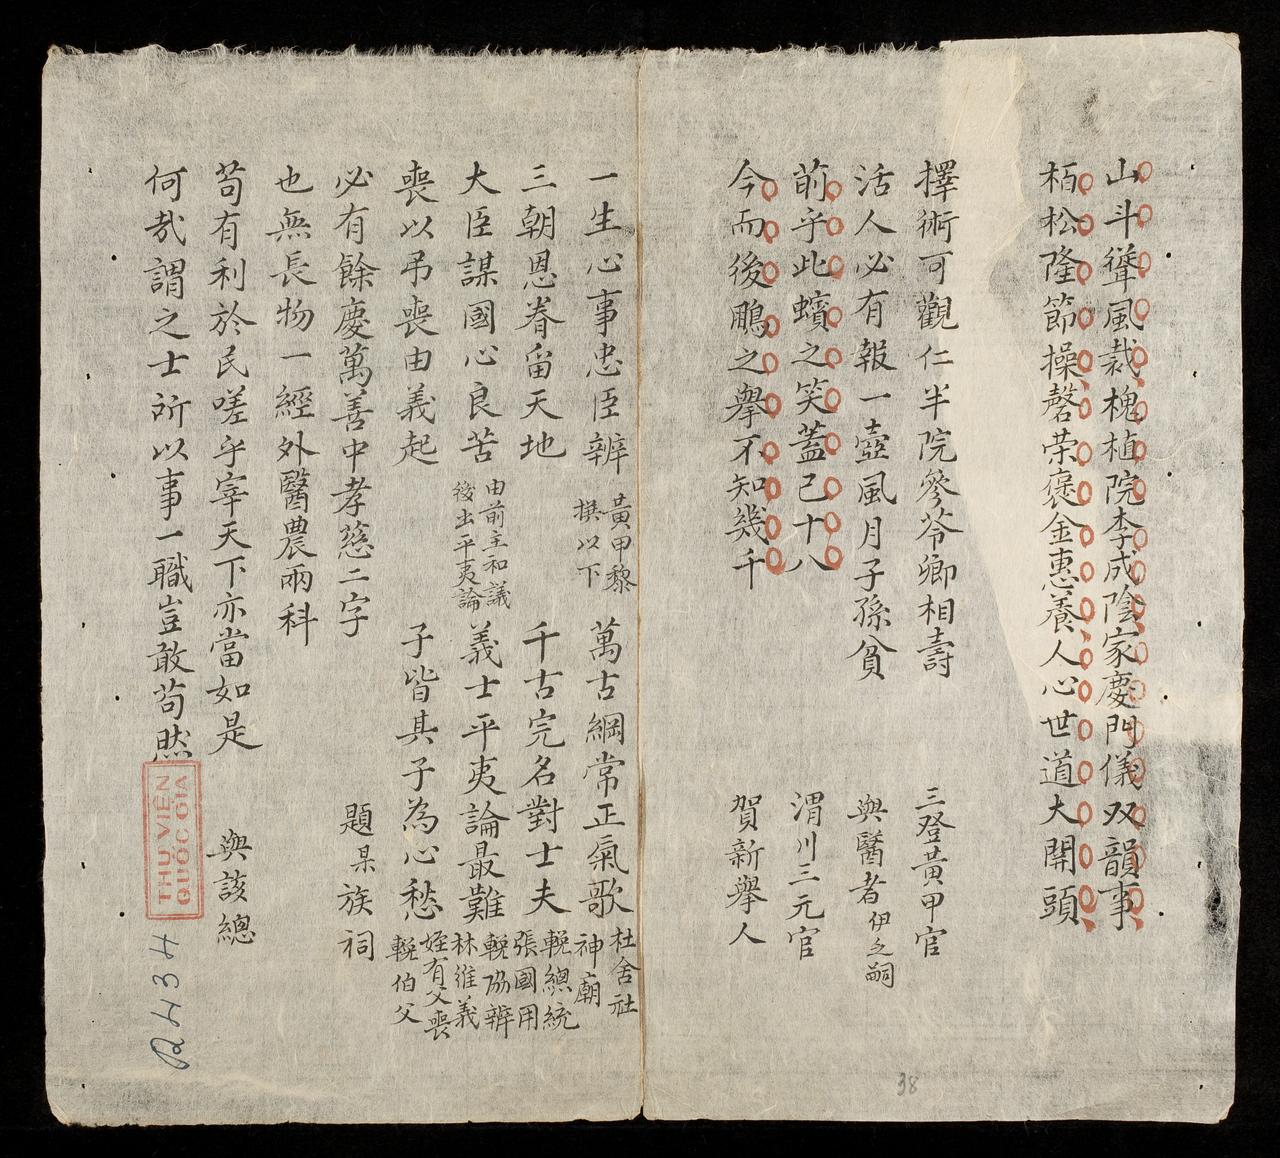 山斗聳風裁槐植院李成陰家慶門儀双韻事
栢松隆節操磬荣褒金惠養人心世道大開頭
擇術可觀仁半院參苓卿相壽 三登黄甲官
活人必有報一壺風月子孫貧 與醫者伊之嗣
前乎此蠙之笑蓋已十八 渭川三元官
今而後鵬之舉不知幾千 賀新舉人
一生心事忠臣辨 黃甲黎撰以下 萬古綱常正氣歌 杜舍社神廟
三朝恩眷留天地 千古完名對士夫 輓總統張國用
大臣謀國心良苦 由前主和議後出平夷論 義士平夷論最難 輓協辨林維義
喪以弔喪由義起 子皆其子為心愁 姪有父喪輓伯父
必有餘慶萬善中孝慈二字 題杲族祠
也無長物一經外醫農兩科
苟有利於民嗟乎宰天下亦當如是 與該總
何哉謂之士所以事一職豈敢苟然
THƯ VIỆN
QUỐC GIA
38